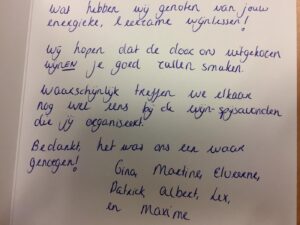 Wat hebben wij genoten van jouw
energieke, leerzame wijnlessen!
Wij hopen dat de door ons uitgekozen
wijnEN je goed zullen smaken.
Waarschijnlijk treffen we elkaar
nog wel eens bij de wijn-spijsavonden
die jij organiseert.
Bedankt, het was ons een waar
genoegen!
Gina, Martine,
Patrick Albert, Lex,
en Maxime